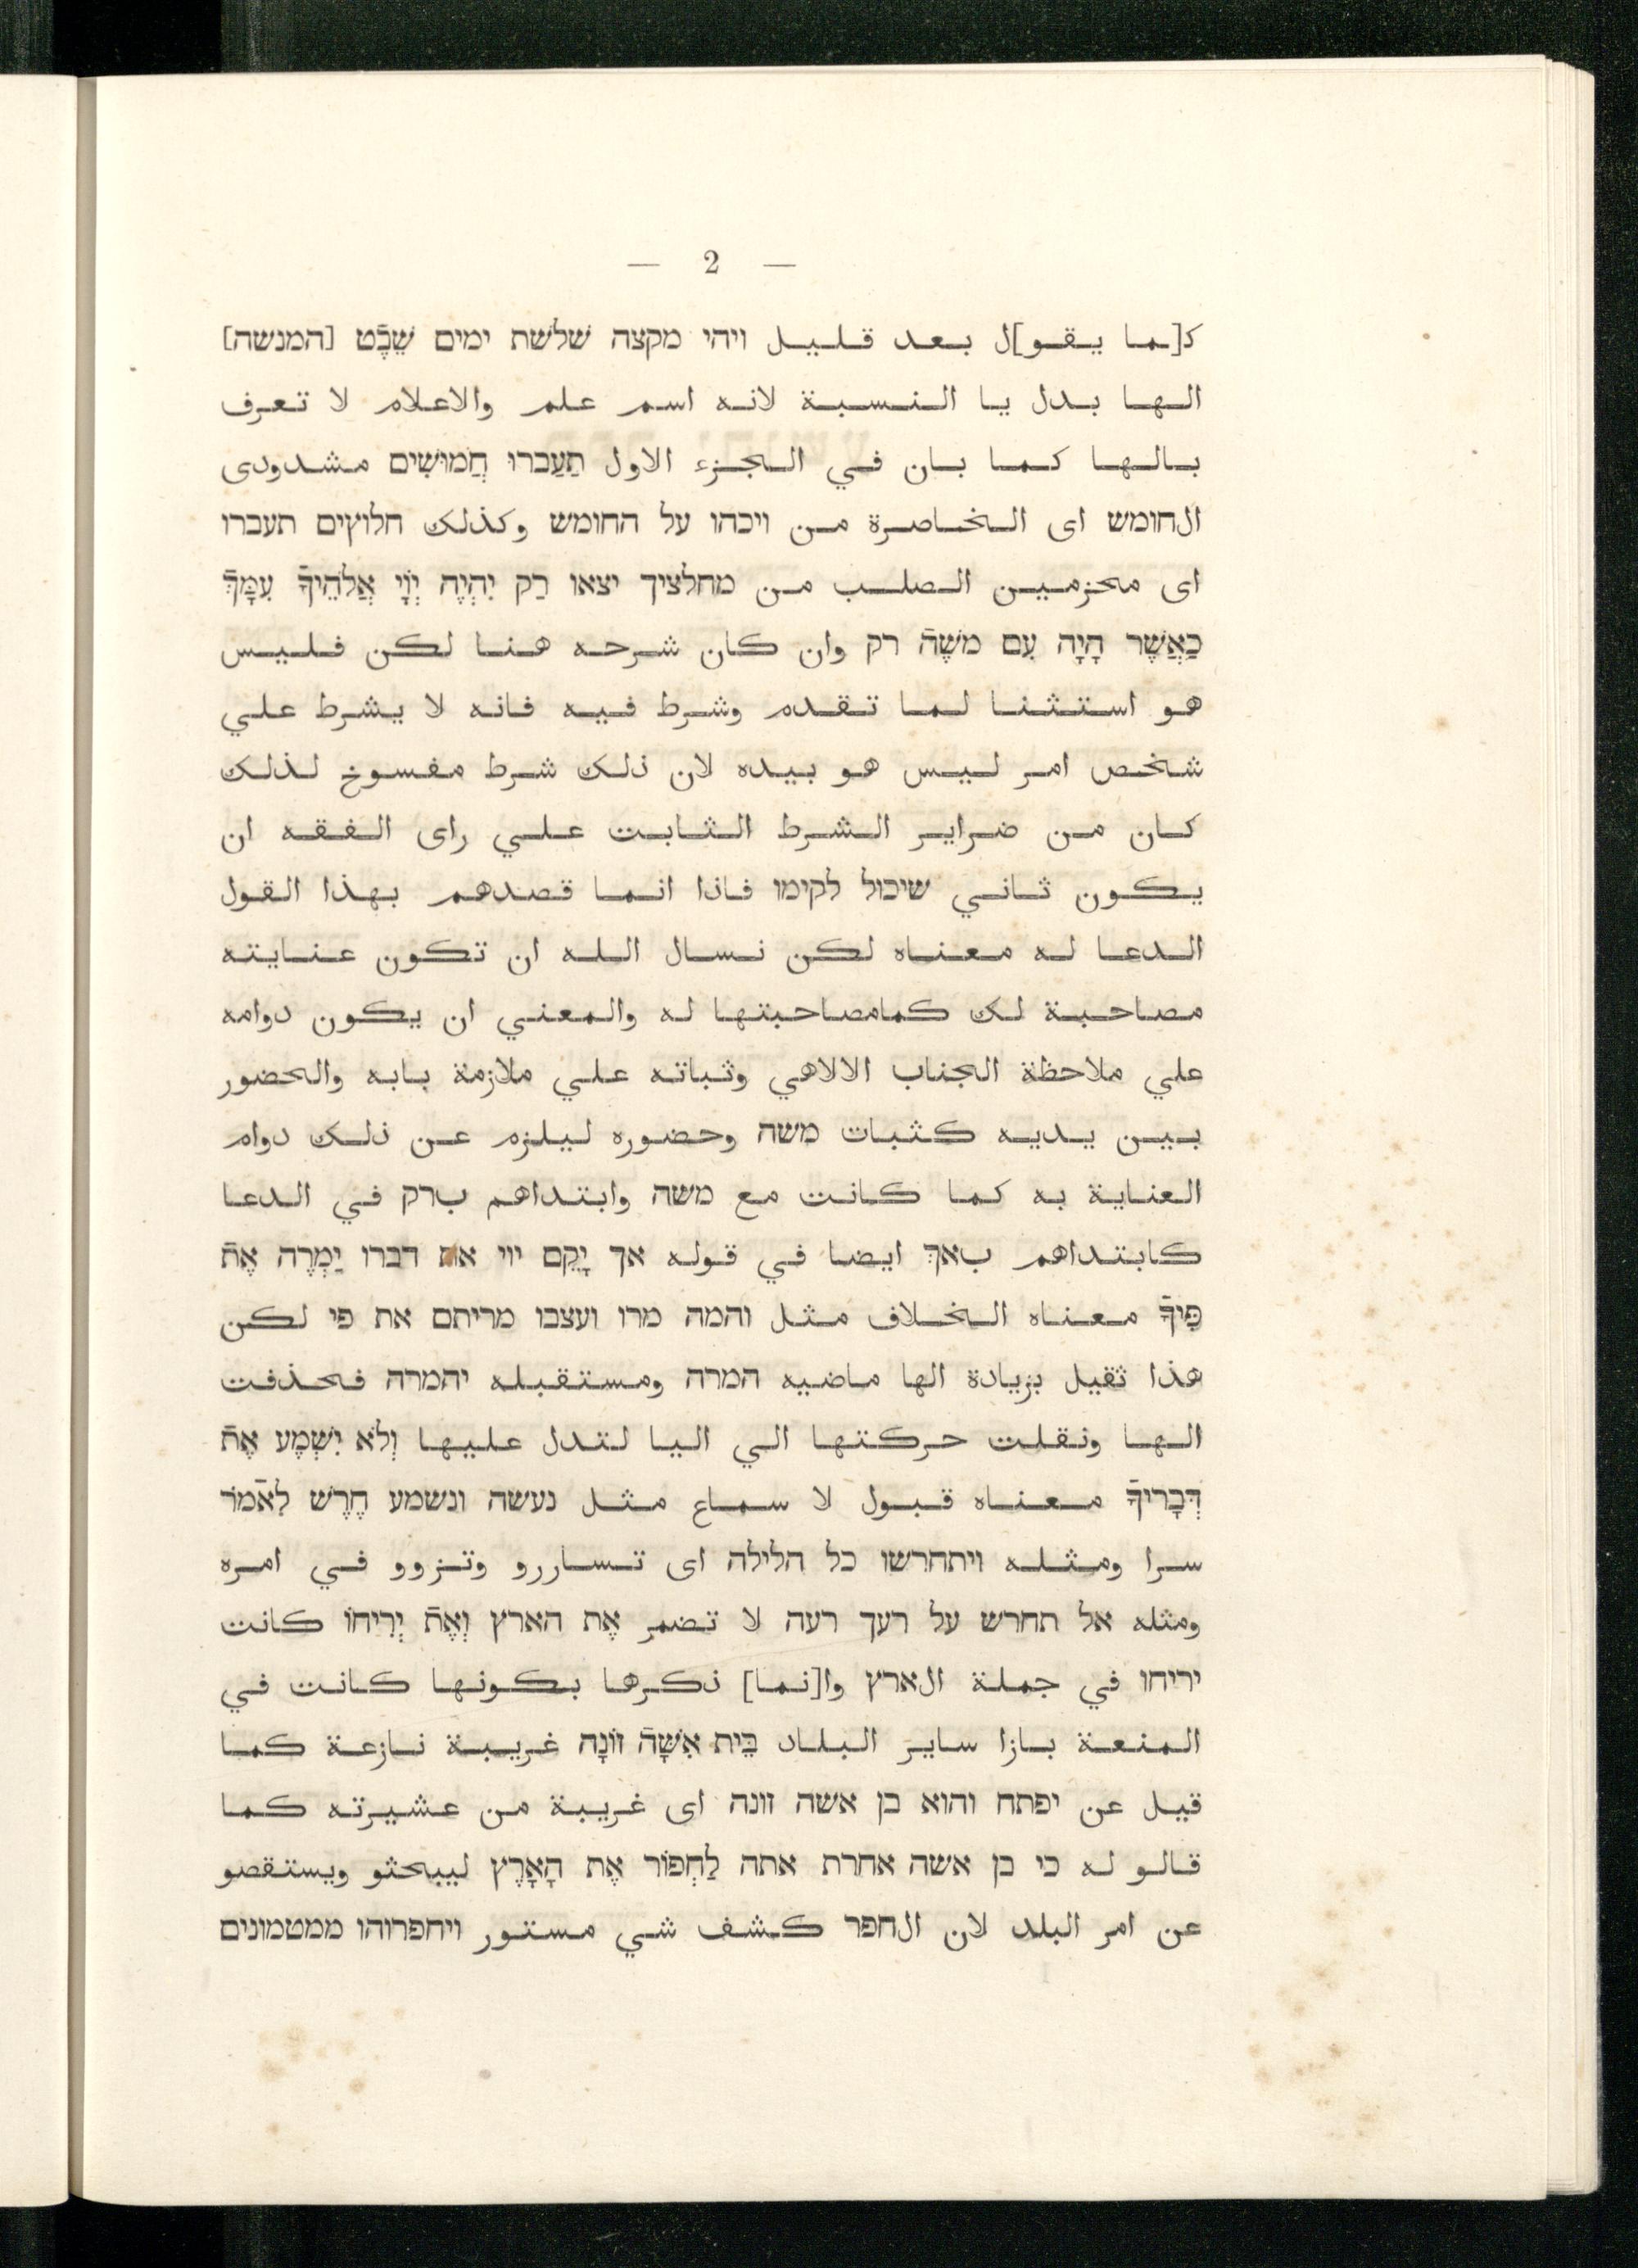 — 2 —
كـ[ـما يقو]ل بعد قليل ויהי מקצה שלשת ימים שֵׁבֶֿט [המנשה]
الها بدل يا النسبة لانه اسم علم والاعلام لا تعرف
بالها كما بان في الجزء الاول תַעַברו חֲמוּשִׁים مشدودى
الחומש اى الخاصرة من ויכהו על החומש وكذلك חלוצים תעברו
اى محزمين الصلب من מחלציך יצאו רַק יִהְיֶה יְוָֹי אֱלֹהֵיךָֿ עִמָּךְֿ
כַּאֲשֶׁר הָיָה עִם מֹשֶׁהֿ רק وان كان شرحه هنا لكن فليس
هو استثنا لما تقدم وشرط فيه فانه لا يشرط علي
شخص امر ليس هو بيده لان ذلك شرط مفسوخ لذلك
كان من ضراير الشرط الثابت علي راى الفقه ان
يكون ثاني שיכול לקימו فاذا انما قصدهم بهذا القول
الدعا له معناه لكن نسال الله ان تكون عنايته
مصاحبة لك كمامصاحبتها له والمعني ان يكون دوامه
علي ملاحظة الجناب الالاهي وثباته علي ملازمة بابه والحضور
بين يديه كثبات משה وحضوره ليلزم عن ذلك دوام
العناية به كما كانت مع משה وابتداهم بרק في الدعا
كابتداهم بאך ايضا في قوله אך יָקֵם יוי את דברו יַמְרֶה אֶתֿ
פִּיךָֿ معناه الخلاف مثل והמה מרו ועצבו מריתם את פי لكن
هذا ثقيل بزيادة الها ماضيه המרה ومستقبله יהמרה فحذفت
الها ونقلت حركتها الي اليا لتدل عليها וְלֹא יִשְׁמֶע אֶתֿ
דְּבָרֶיךָֿ معناه قبول لا سماع مثل נעשה ונשמע חֶרֶשׁ לֵאמֹֿר
سرا ومثله ויתחרשו כל הלילה اى تساررو وتزوو في امره
ومثله אל תחרש על רעך רעה لا تضمر אֶת הארץ וְאֶתֿ יְרִיחוֹ كانت
יריחו في جملة الארץ وا[نما] ذكرها بكونها كانت في
المنعة بازا ساير البلاد בֵּית אִשָּׁהֿ זוֹנָה غريبة نازعة كما
قيل عن יפתח והוא בן אשה זונה اى غريبة من عشيرته كما
قالو له כי בן אשה אחרת אתה לַחְפּוֹר אֶת הָאָרֶץ ليبحثو ويستقصو
عن امر البلد لان الחפר كشف شي مستور ויחפרוהו ממטמונים